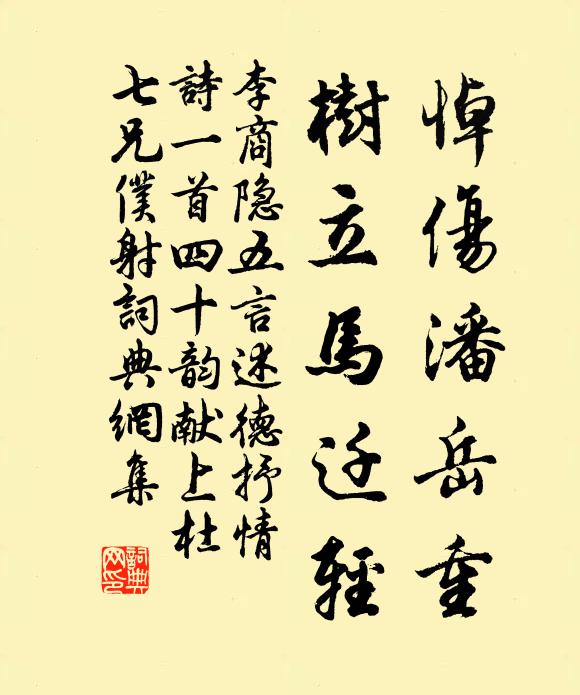 悼傷潘岳重
樹立馬迁輕
李商隐五言述德抒情
詩一首四十韵献上杜
七兄僕射詞典網集
詞典
网印